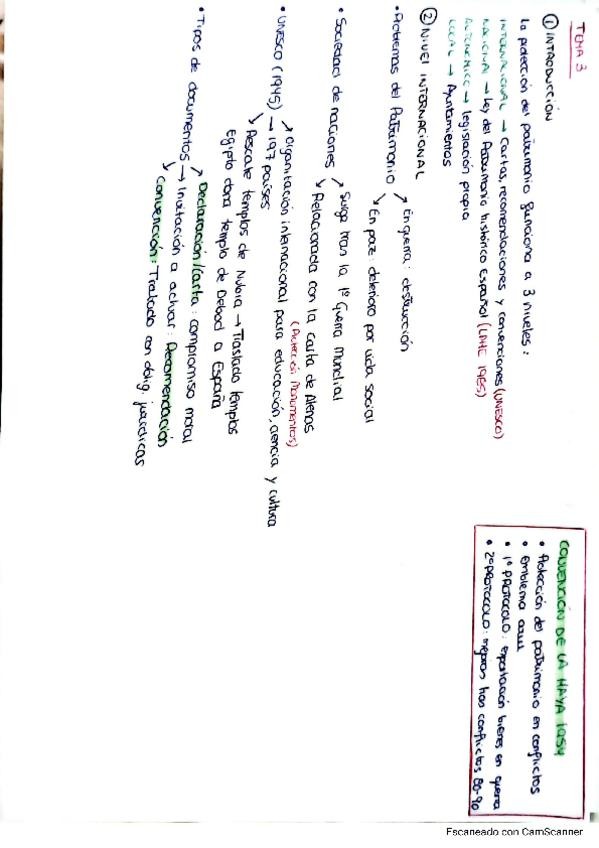 TEMA 3
① INTRODUCCIÓN
La protección del patrimonio funciona a 3 niveles:
INTERNACIONAL → Cartas, recomendaciones y convenciones (UNESCO)
NACIONAL → Ley del Patrimonio histórico Español (LPHE 1985)
AUTONÓMICO → legislación propia
LOCAL → Ayuntamientos
② NIVEL INTERNACIONAL
• Problemas del Patrimonio ↗ En guerra: destrucción
↘ En paz: deterioro por vida social
• Sociedad de naciones ↗ Surge tras la 1º Guerra Mundial
↘ Relacionada con la carta de Atenas
(Protección Monumentos)
• UNESCO (1945) ↗ Organización internacional para educación, ciencia y cultura
→ 197 países
↘ Rescate templos de Nubia → Traslado templos
Egipto dona templo de Debod a España
• Tipos de documentos ↗ Declaración/Carta: compromiso moral
→ Invitación a actuar: Recomendación
↘ Convención: Tratado con oblig. jurídicas
CONVENCIÓN DE LA HAYA 1954
• Protección del patrimonio en conflictos
• Emblema azul
• 1º PROTOCOLO: exportación bienes en guerra
• 2º PROTOCOLO: mejoras tras conflictos 80-90
Escaneado con CamScanner